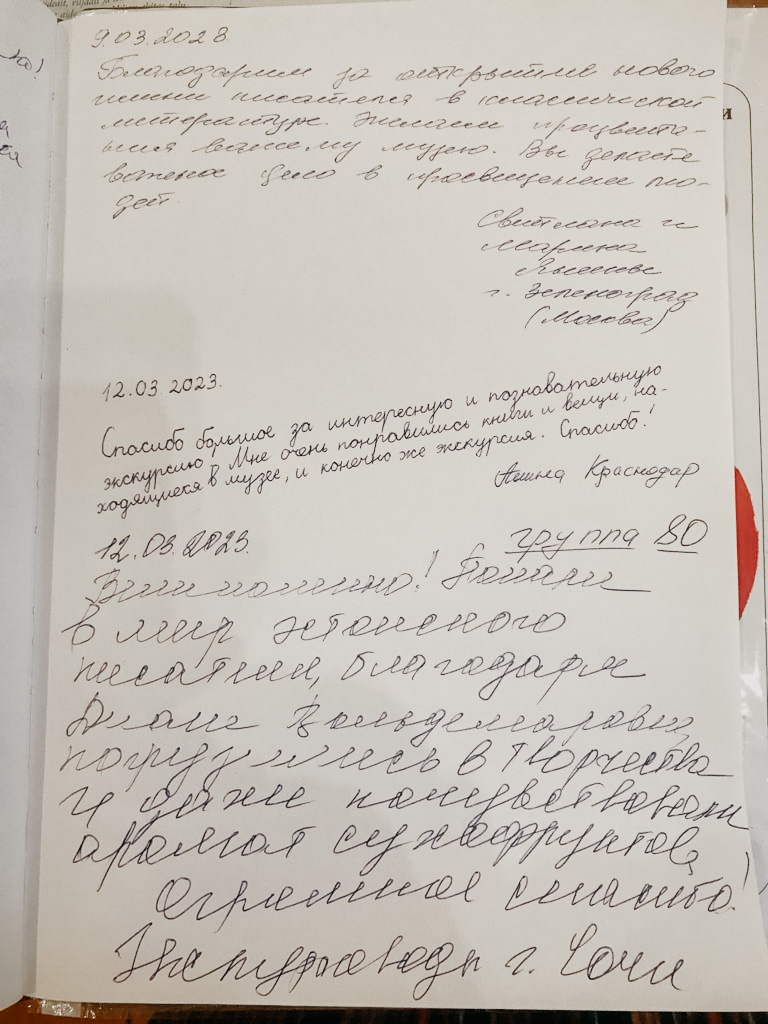 9.03.2023
Благодарим за открытие нового
имени писателя в классической
литературе. Желаем процвета-
ния вашему музею. Вы делаете
важное дело в просвещении лю-
дей.
Светлана и
Марина
г. Зеленоград
(Москва)
12.03.2023.
Спасибо большое за интересную и познавательную
экскурсию! Мне очень понравились книги и вещи, на-
ходящиеся в музее, и конечно же экскурсия. Спасибо!
Краснодар
12.03.2023.
группа 80
Внимательно! Попали
в мир эстонского
писателя, благодаря
Вольдемаровне,
погрузились в творчества
и даже почувствовали
аромат сухофруктова,
Огромное спасибо!
Экскурсоводы г. Сочи